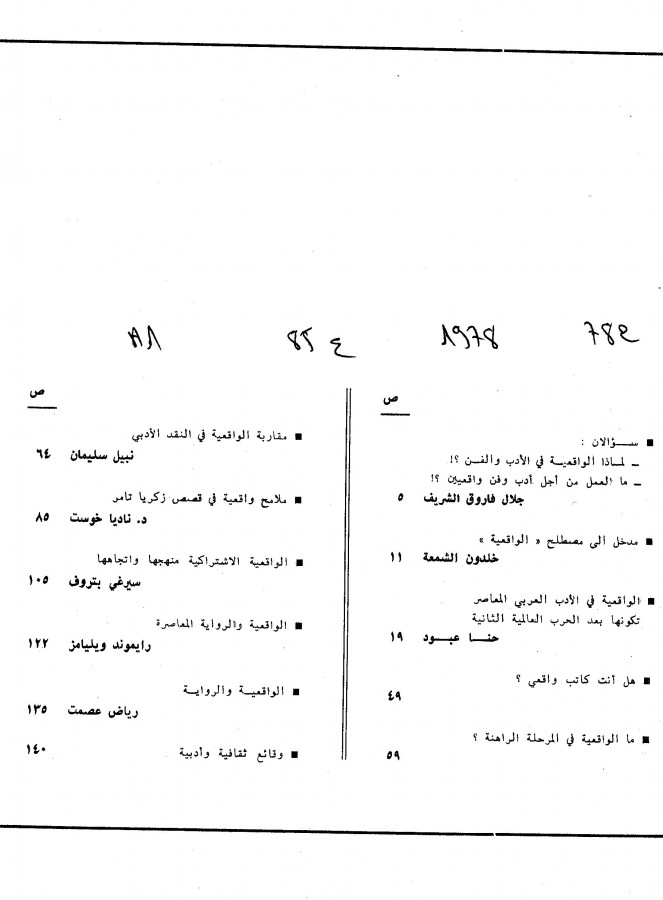 782 1978 ع 85 ٨١
ص
■ ســـؤالان :
ـ لمـاذا الواقعيــة في الأدب والفــن ؟!
ـ ما العمل من أجل أدب وفن واقعيين ؟!
جلال فاروق الشريف ٥
■ مدخل الى مصطلح « الواقعية »
خلدون الشمعة ١١
■ الواقعية في الأدب العربي المعاصر
تكونها بعد الحرب العالمية الثانية
حنــا عبــود ١٩
■ هل أنت كاتب واقعي ؟
٤٩
■ ما الواقعية في المرحلة الراهنة ؟
٥٩
ص
■ مقاربة الواقعية في النقد الأدبي
نبيل سليمان ٦٤
■ ملامح واقعية في قصص زكريا تامر
د. ناديا خوست ٨٥
■ الواقعية الاشتراكية منهجها واتجاهها
سيرغي بتروف ١٠٥
■ الواقعية والرواية المعاصرة
رايموند ويليامز ١٢٢
■ الواقعيـة والروايـة
رياض عصمت ١٣٥
■ وقائع ثقافية وأدبية ١٤٠